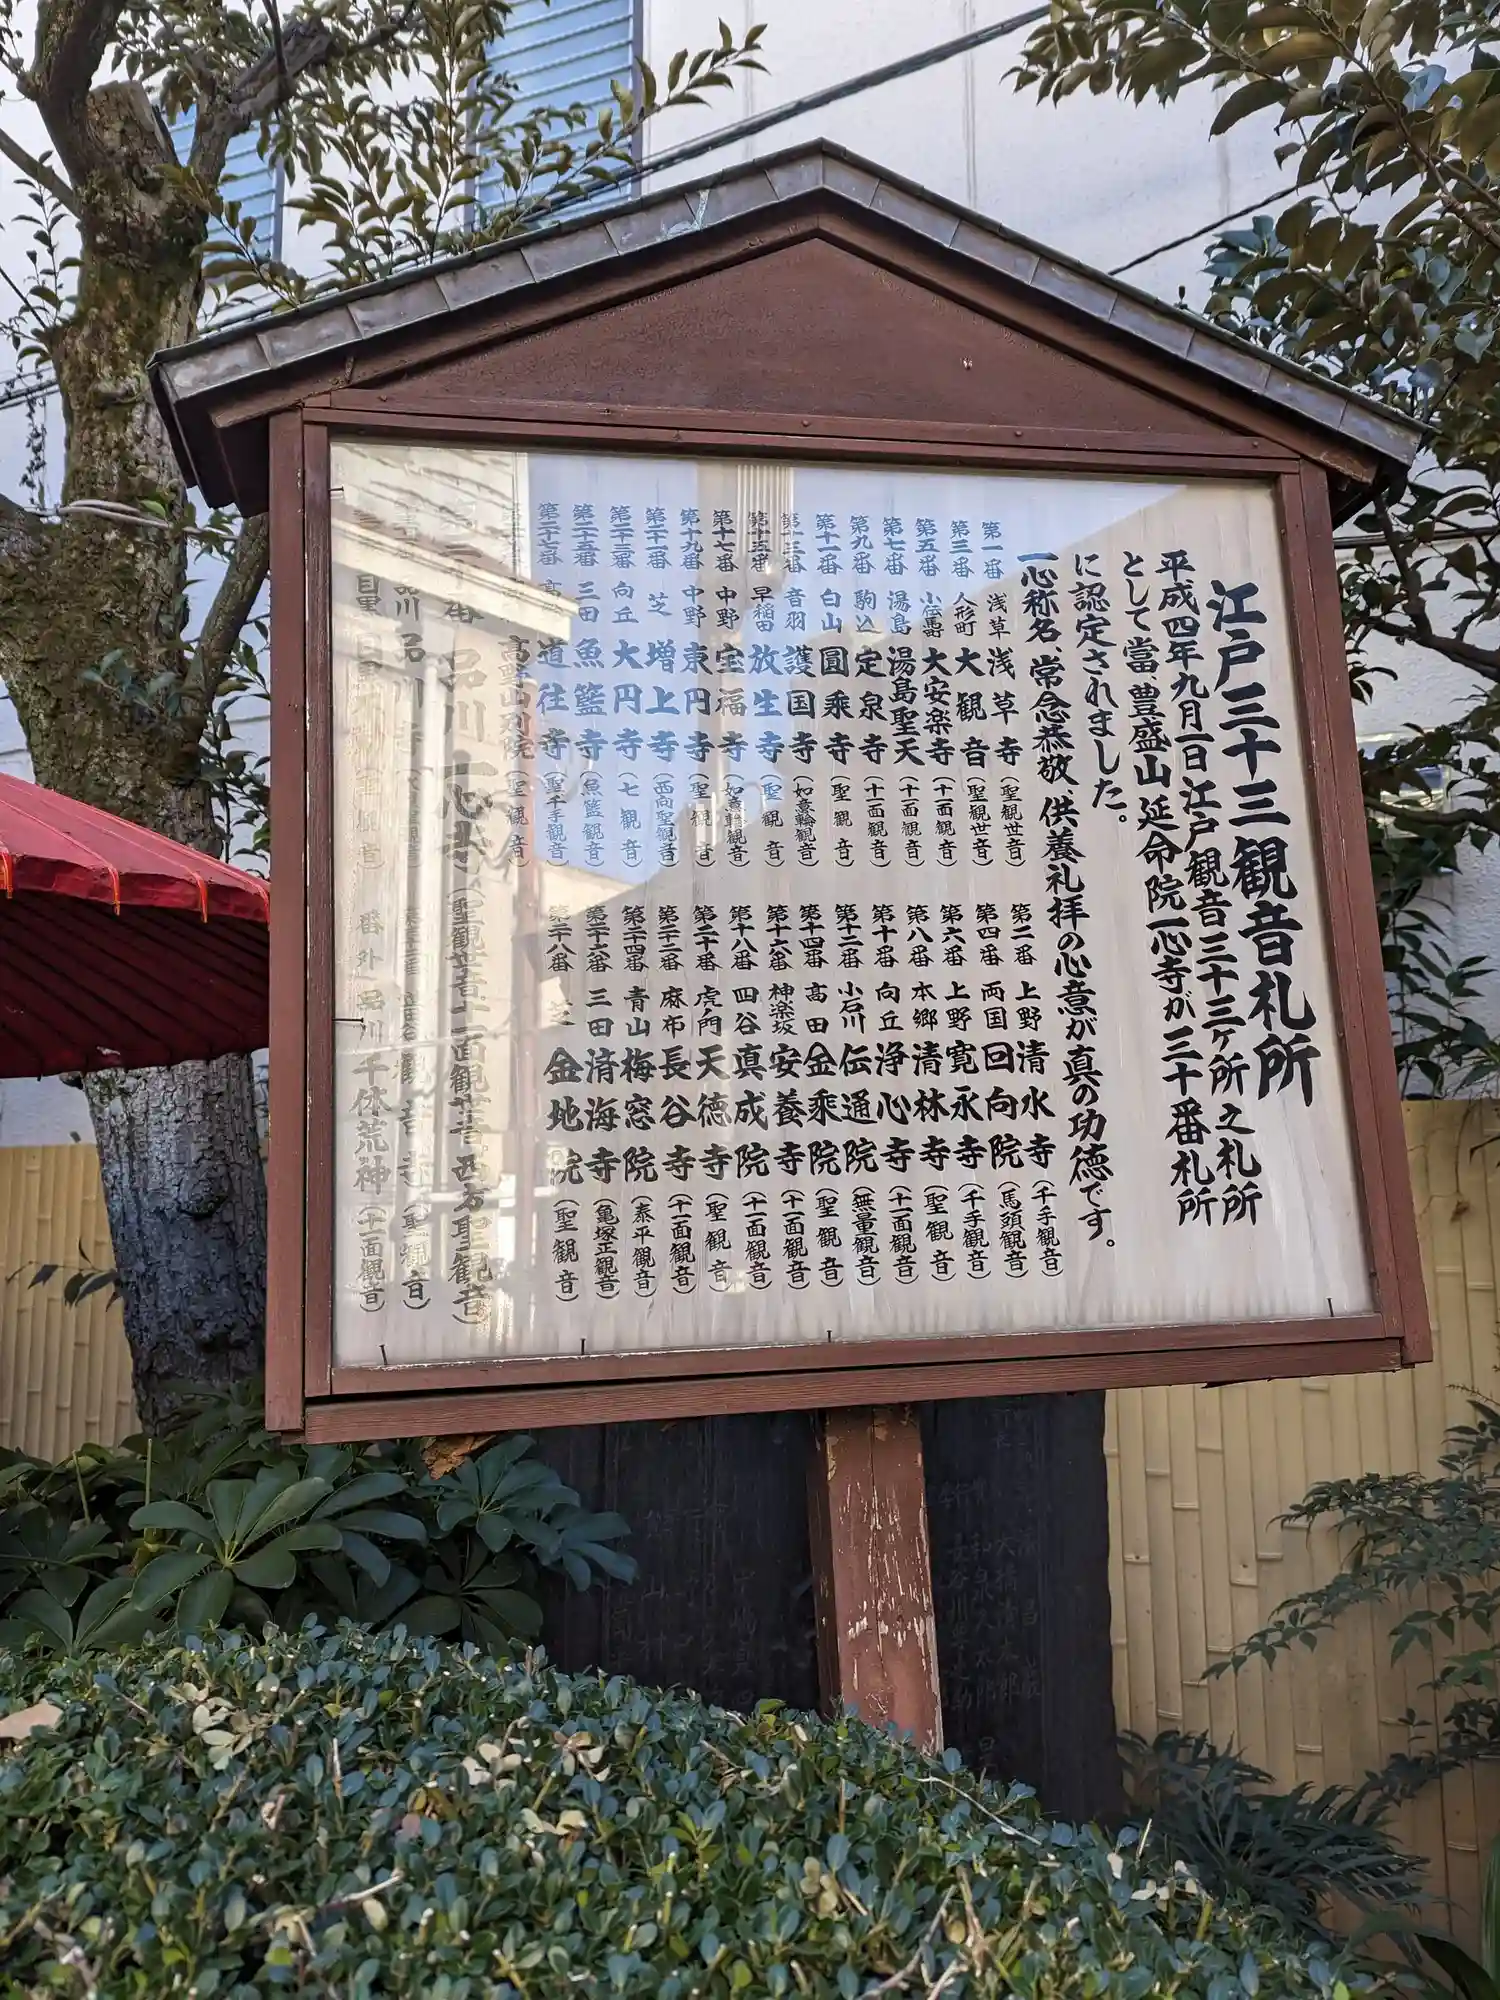 江戸三十三観音札所
平成四年九月一日江戸観音三十三ヶ所之札所
として當、豊盛山延命院一心寺が三十番札所
に認定されました。
一心称名、常念恭敬、供養礼拝の心意が真の功徳です。
第一番 浅草 浅草寺（聖観世音）
第三番 人形町 大観音（聖観世音）
第五番 小伝馬町 大安楽寺（十一面観音）
第七番 湯島 湯島聖天（十一面観音）
第九番 駒込 定泉寺（十一面観音）
第十一番 白山 圓乗寺（聖観音）
第十三番 音羽 護国寺（如意輪観音）
第十五番 早稲田 放生寺（聖観音）
第十七番 中野 宝福寺（如意輪観音）
第十九番 中野 東円寺（聖観音）
第二十一番 芝 増上寺（西向聖観音）
第二十三番 向丘 大円寺（七観音）
第二十五番 三田 魚籃寺（魚籃観音）
第二十七番 高 道往寺（聖千手観音）
高野山別院（聖観音）
第二番 上野 清水寺（千手観音）
第四番 両国 回向院（馬頭観音）
第六番 上野 寛永寺（千手観音）
第八番 本郷 清林寺（聖観音）
第十番 向丘 浄心寺（十一面観音）
第十二番 小石川 伝通院（無量観音）
第十四番 高田 金乗院（聖観音）
第十六番 神楽坂 安養寺（十一面観音）
第十八番 四谷 真成院（十一面観音）
第二十番 虎ノ門 天徳寺（聖観音）
第二十二番 麻布 長谷寺（十一面観音）
第二十四番 青山 梅窓院（泰平観音）
第二十六番 三田 済海寺（亀塚正観音）
第二十八番 芝 金地院（聖観音）
第三十番 品川 一心寺（聖観世音 十一面観世音 西方聖観音）
品川 品川寺
観音寺（聖観音）
目黒
番外 品川 千体荒神（十一面観音）